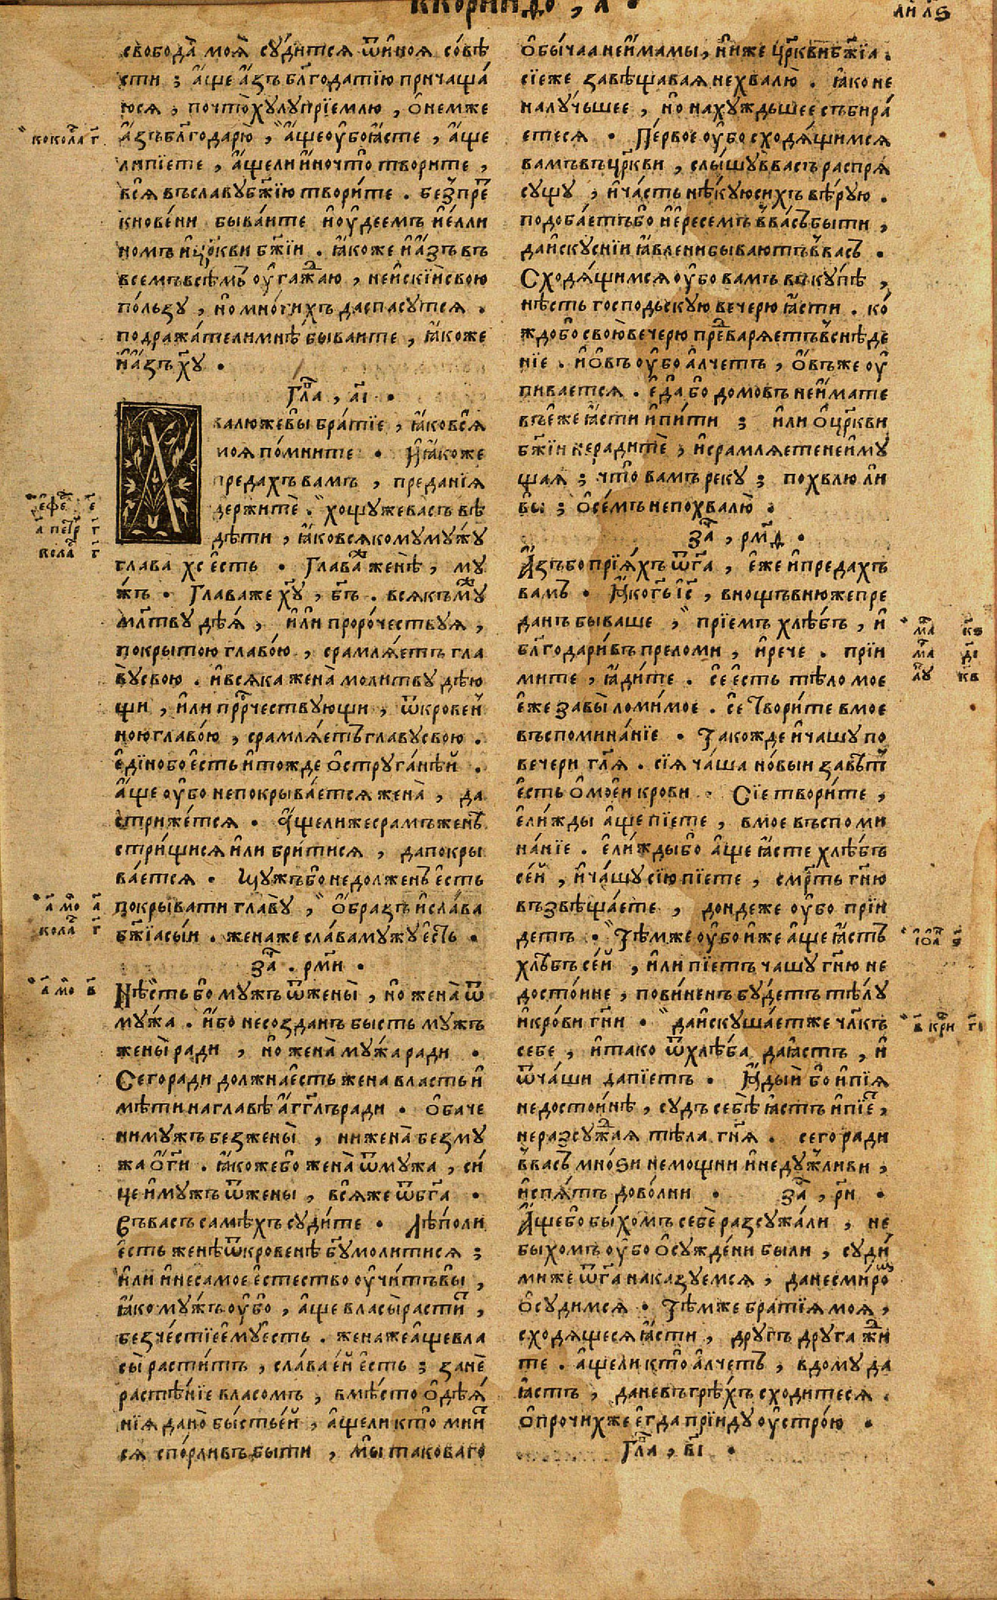 к корин҃ѳо , а҃ .
ли лѕ
свобода моѧ̀ сꙋ́дитсѧ ѿ и́ноѧ со́вѣ
сти ; а́ще а́зъ блг҃одатїю причаща́
юсѧ , почто̀ хꙋлꙋ прїемлю , о́ немже
а́зъ блг҃одарю̀ , а́ще оу҆бо ꙗ҆сте , а́ще
ли пїете , а́ще ли и́но что̀ творите ,
всѧ въ славꙋ бж҃їю твори́те . без̾ пре
кнове́ни быва́ите и҆ ю҆деемъ и҆ е҆лли
номъ и҆ цр҃кви бж҃їи . ꙗ҆коже и҆ а́зъ въ
всемъ всѣмъ оу҆гажаю , не и҆скїи свою
по́льзꙋ , но мно́гихъ да спасꙋтсѧ .
подража́тели мнѣ быва́ите , ꙗ҆коже
и҆ а́зъ хꙋ҃ .
Гла҃ , аі҃ .
Хвалю же вы бра́тїе , ꙗ҆ко всѧ
моѧ по́мните . И ꙗ҆коже
предахъ вамъ , преданїѧ
держитѐ . хощꙋ же васъ вѣ
дѣти , ꙗ҆ко всѧкомꙋ мꙋжꙋ
глава хс҃ е҆сть . Глава̀ же женѣ̀ , мꙋ
жъ . Глава же хꙋ҃ , бг҃ъ . всѧкъ мꙋ
мл҃твꙋ дѣ́ѧ , и҆ли проро́чествꙋѧ ,
покрытою главо́ю , срамлѧ́етъ гла
вꙋ свою . и҆ всѧка жена̀ молитвꙋ дѣю
щи , и҆ли прⷪ҇рчествꙋющи , ѿкровен
ною главо́ю , срамлѧ́етъ главꙋ свою .
е҆ди́но бо е҆сть и҆ тожде о҆стрꙋга́нѣй .
а́ще оу҆бо не покрыва́етсѧ жена̀ , да
стриже́тсѧ . а́ще ли же срамъ женѣ
стри́щисѧ и҆ли бри́тисѧ , да покры
ва́етсѧ . Мꙋжъ бо не долженъ е҆сть
покрывати главꙋ̀ , о́бразъ и҆ сла́ва
бж҃їа сы́и . жена же сла́ва мꙋжꙋ е҆сть .
За҃ . рмн҃ .
Нѣсть бо мꙋжъ ѿ жены̀ , но жена̀ ѿ
мꙋжа . и́бо не созданъ бысть мꙋжъ
жены̀ ради , но жена̀ мꙋ́жа ради .
Сего ради должна е҆сть жена власть и҆
мѣ́ти на главѣ а҆гг҃лъ ради . о҆баче
ни мꙋжъ без жены̀ , ни жена̀ без мꙋ
жа о́ г҃и . ꙗ҆коже бо жена̀ ѿ мꙋжа , си́
це и҆ мꙋжъ ѿ жены , всѧ же ѿ бг҃а .
Въ васъ самѣхъ сꙋди́те . Лѣ́по ли
е҆сть женѣ ѿкровенѣ бг҃ꙋ молитисѧ ;
и҆ли и҆ не самое е҆стество оу҆чи́тъ вы̀ ,
ꙗ҆ко мꙋ́жъ оу҆бо , а́ще власы̀ расти́т ,
безче́стїе е҆мꙋ е҆сть . жена же а́ще вла
сы̀ расти́тъ , сла́ва е҆й е҆сть ; занѐ
растѣ́нїе власомъ , вмѣ́сто о҆дѣѧ́
нїѧ дано̀ бы́сть е҆й , а́ще ли кто̀ мнит
сѧ спо́рливъ быти , мы̀ таковаго
о҆бы́чаа не и҆мамы , ниже цр҃кви бж҃їа .
сїе же завѣщаваѧ не хвалю̀ . ꙗ҆ко не
на лꙋ́чьшее , но на хꙋждьшее събира́
етесѧ . Пе́рвое оу҆бо сходѧ́щимсѧ
вамъ въ цр҃кви , слы́шꙋ в васъ распрѧ
сꙋщꙋ , и҆ ча́сть нѣ́кꙋю сихъ вѣ́рꙋю .
подоба́етъ бо и҆ е҆ресемъ в васъ бы́ти ,
да и҆скꙋснїи ꙗ҆влени бываютъ в васъ .
Сходѧ́щимсѧ оу҆бо вамъ вкꙋ́пѣ ,
нѣ́сть господьскꙋю вечерю ꙗ҆сти . ко́
ждо бо свою̀ вечерю предварѧетъ снѣде
нїе . и҆ о́въ оу҆бо а́лчетъ , о́въ же оу҆
пиваетсѧ . е҆да бо домовъ не и҆мате
въ е́же ꙗ҆сти и҆ пи́ти ; и҆ли о҆ цр҃кви
бж҃їи неради́те , и҆ срамлѧете не и҆мꙋ
щаѧ ; что̀ вамъ рекꙋ ; похвлю ли
вы ; о҆ се́мъ не похвалю̀ .
За҃ , рмд҃ .
А́зъ бо прїѧ́хъ ѿ га҃ , е́же и҆ предахъ
вамъ . Ꙗ҆ко гь҃ іс҃ , в нощь в ню же пре
данъ бываше , прїемъ хлѣ́бъ , и҆
блг҃одари́въ преломи , и҆ рече . прїи
мите , ꙗ҆ди́те . се е҆сть тѣло мое
е́же за вы̀ ломи́мое . сѐ твори́те в мое
въспомина́нїе . Такожде и҆ чашꙋ по
вечери гл҃ѧ . сїѧ ча́ша но́выи завѣ́т
е҆сть о҆ моеи крови . Сїе твори́те ,
е҆ли́жды а́ще пїете , в мое въспоми
на́нїе . е҆ли́жды бо а́ще ꙗ҆сте хлѣ́бъ
се́й , и҆ ча́шꙋ сїю пїете , сме́рть гн҃ю
възвѣща́ете , дондеже оу҆бо прїи
детъ . Тѣ́мже оу҆бо и́же а́ще ꙗ҆стъ
хлѣ́бъ се́й , и҆ли пїетъ чашꙋ гн҃ю не
досто́ине , пови́ненъ бꙋ́детъ тѣ́лꙋ
и҆ кро́ви гн҃и . да и҆скꙋша́ет же чл҃къ
себе , и҆ тако ѿ хлѣ́ба да ꙗ҆стъ , и҆
ѿ ча́ши да пїетъ . Ꙗ҆ды́й бо и҆ пїѧ
недосто́инѣ , сꙋ́дъ себѣ̀ ꙗ҆стъ и҆ пїе́т ,
не разсꙋжаѧ тѣла гн҃ѧ . сего ради
в васъ мно́ѕи немощни и҆ недꙋ́жливи ,
и҆ спѧ́тъ дово́лни . За҃ , рн҃ .
А́ще бо бы́хомъ себѐ разсꙋжа́ли , не
быхомъ оу҆бо о҆сꙋжде́ни были , сꙋди́
ми же ѿ га҃ наказꙋемсѧ , да не с миро
о҆сꙋдимсѧ . Тѣ́мже братїѧ моѧ ,
сходѧ́щесѧ ꙗ҆сти , дрꙋгъ дрꙋга жди
те . а́ще ли кто̀ а́лчетъ , в домꙋ да
ꙗ҆стъ , да не въ грѣ́хъ сходитесѧ .
о҆ прочи́х же е҆гда прїи́дꙋ оу҆стро́ю .
Гла҃ , ві҃ .
кокола г҃
е҆фе е҃
а҃ петр г҃
кола г҃
а҃ мо а҃
кола г҃
а҃ мо в҃
ма кѕ
ма ді
лꙋ кв
іѡа ѕ҃
в҃ кри гі